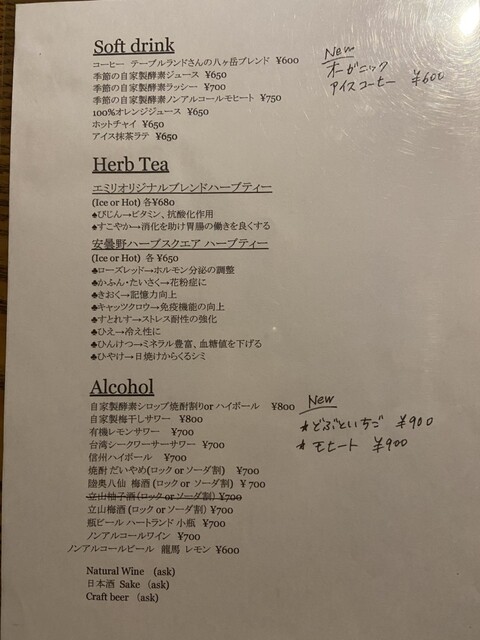 Soft drink
コーヒー テーブルランドさんの八ヶ岳ブレンド ¥600
季節の自家製酵素ジュース ¥650
季節の自家製酵素ラッシー ¥700
季節の自家製酵素ノンアルコールモヒート ¥750
100%オレンジジュース ¥650
ホットチャイ ¥650
アイス抹茶ラテ ¥650
New
オーガニック
アイスコーヒー ¥600
Herb Tea
エミリオリジナルブレンドハーブティー
(Ice or Hot) 各¥680
♠びじん→ビタミン、抗酸化作用
♠すこやか→消化を助け胃腸の働きを良くする
安曇野ハーブスクエア ハーブティー
(Ice or Hot) 各 ¥650
♣ローズレッド→ホルモン分泌の調整
♣かふん・たいさく→花粉症に
♣きおく→記憶力向上
♣キャッツクロウ→免疫機能の向上
♣すとれす→ストレス耐性の強化
♣ひえ→冷え性に
♣ひんけつ→ミネラル豊富、血糖値を下げる
♣ひやけ→日焼けからくるシミ
Alcohol
自家製酵素シロップ焼酎割りor ハイボール ¥800
自家製梅干しサワー ¥800
有機レモンサワー ¥700
台湾シークワーサーサワー ¥700
信州ハイボール ¥700
焼酎 だいやめ(ロック or ソーダ割) ¥700
陸奥八仙 梅酒 (ロック or ソーダ割) ¥700
立山柚子酒(ロック or ソーダ割) ¥700
立山梅酒 (ロック or ソーダ割) ¥700
瓶ビール ハートランド 小瓶 ¥700
ノンアルコールワイン ¥700
ノンアルコールビール 龍馬 レモン ¥600
New
* どぶといちご ¥900
* モヒート ¥900
Natural Wine (ask)
日本酒 Sake (ask)
Craft beer (ask)